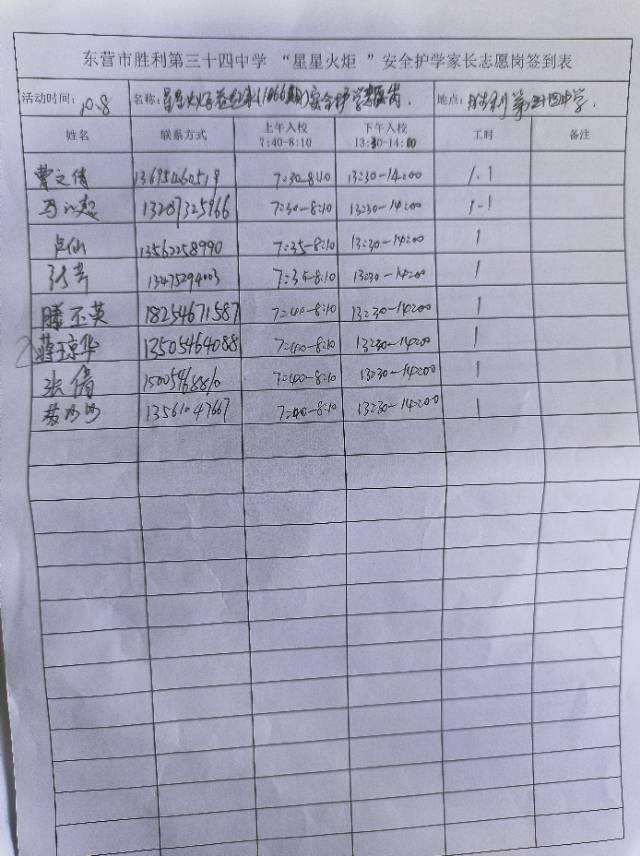 东营市胜利第三十四中学 “星星火炬 ”安全护学家长志愿岗签到表
活动时间: 10.8 名称: 星星火炬 (1066期)安全护学 岗. 地点: 胜利第三十四中学.
姓名 联系方式 上午入校 7:40-8:10 下午入校 13:30-14:00 工时 备注
曹文倩 13695460519 7:30-8:10 13:30-14:00 1.1
马 超 13207325966 7:30-8:10 13:30-14:00 1.1
卢仙 13562258990 7:35-8:10 13:30-14:00 1
张芳 13475294003 7:35-8:10 13:30-14:00 1
滕丕英 18254671587 7:40-8:10 13:30-14:00 1
蒋琼华 13505464088 7:40-8:10 13:30-14:00 1
张倩 15005468810 7:40-8:10 13:30-14:00 1
13561047667 7:40-8:10 13:30-14:00 1